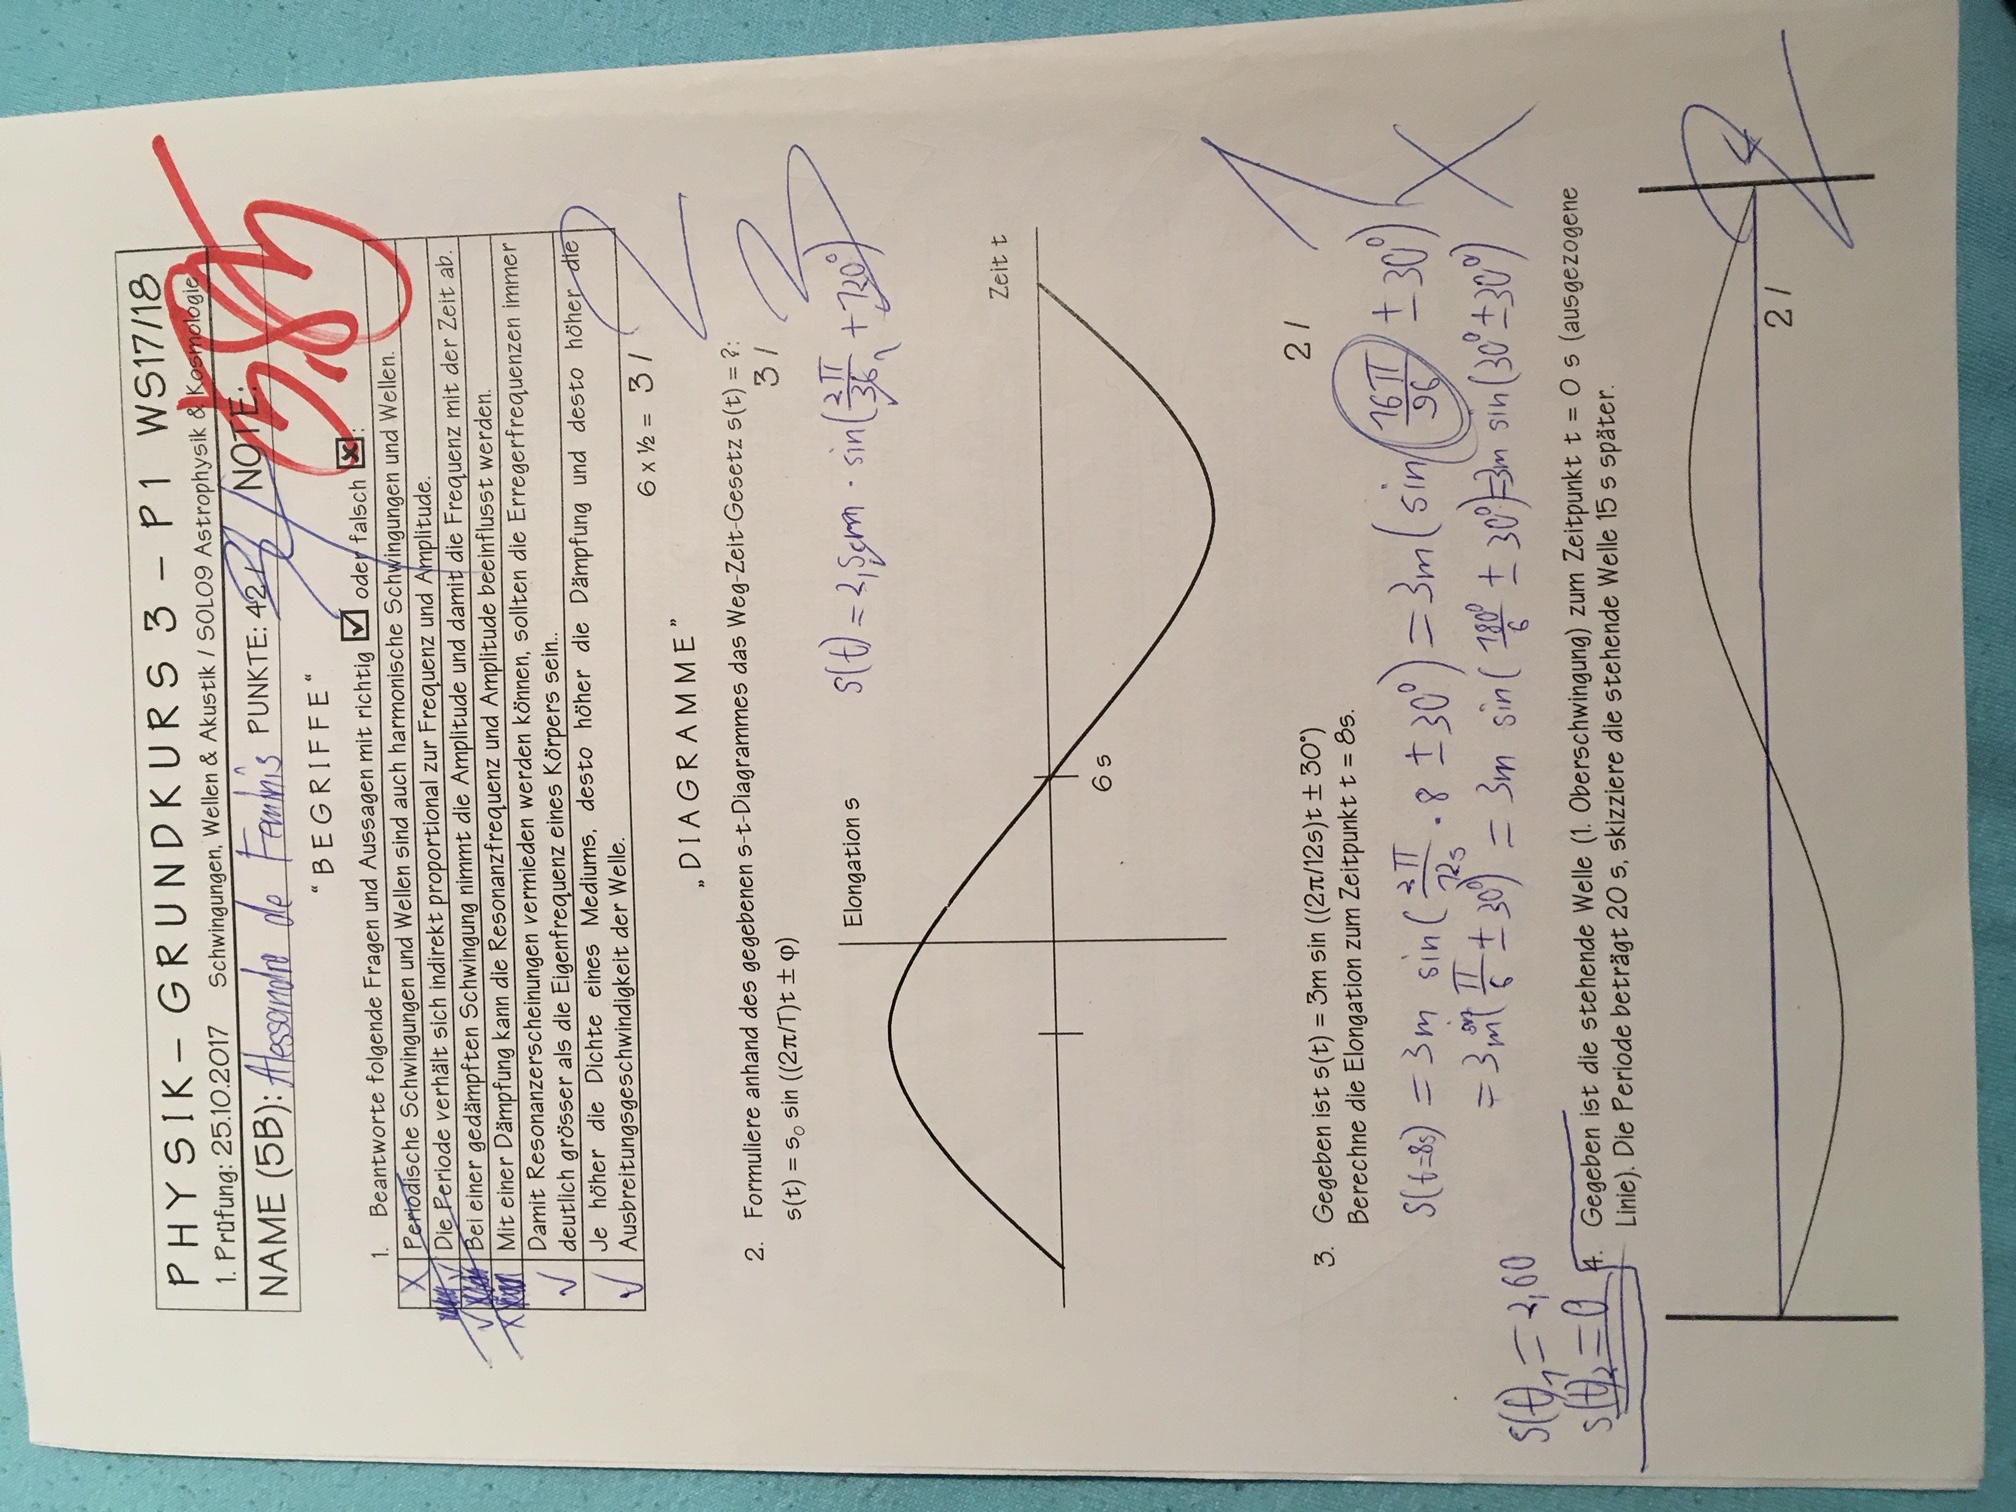 PHYSIK – GRUNDKURS 3 – P1 WS17/18
1. Prüfung: 25.10.2017 Schwingungen, Wellen & Akustik / SOL09 Astrophysik & Kosmologie
NAME (5B): Alessandro de PUNKTE: 42 / NOTE: 5,85
"BEGRIFFE"
1. Beantworte folgende Fragen und Aussagen mit richtig ☑ oder falsch ☒:
X Periodische Schwingungen und Wellen sind auch harmonische Schwingungen und Wellen.
✓ Die Periode verhält sich indirekt proportional zur Frequenz und Amplitude.
✓ Bei einer gedämpften Schwingung nimmt die Amplitude und damit die Frequenz mit der Zeit ab.
X Mit einer Dämpfung kann die Resonanzfrequenz und Amplitude beeinflusst werden.
Damit Resonanzerscheinungen vermieden werden können, sollten die Erregerfrequenzen immer
✓ deutlich grösser als die Eigenfrequenz eines Körpers sein..
Je höher die Dichte eines Mediums, desto höher die Dämpfung und desto höher die
✓ Ausbreitungsgeschwindigkeit der Welle.
6 x ½ = 3 / 2
„DIAGRAMME"
2. Formuliere anhand des gegebenen s-t-Diagrammes das Weg-Zeit-Gesetz s(t) = ?:
3 /
s(t) = s₀ sin ((2π/T)t ± φ)
Elongation s
s(t) = 2,5cm · sin(2π/36 + 120°)
Zeit t
6 s
2 / 1
3. Gegeben ist s(t) = 3m sin ((2π/12s)t ± 30°)
Berechne die Elongation zum Zeitpunkt t = 8s.
S(t=8s) = 3m sin(2π/12s · 8 ± 30°) = 3m (sin 16π/96 ± 30°)
= 3m sin(π/6 ± 30°) = 3m sin(180°/6 ± 30°) = 3m sin(30° ± 30°)
s(t)₁ = 2,60
s(t)₂ = 0
4. Gegeben ist die stehende Welle (1. Oberschwingung) zum Zeitpunkt t = 0 s (ausgezogene
Linie). Die Periode beträgt 20 s, skizziere die stehende Welle 15 s später.
2 / 2